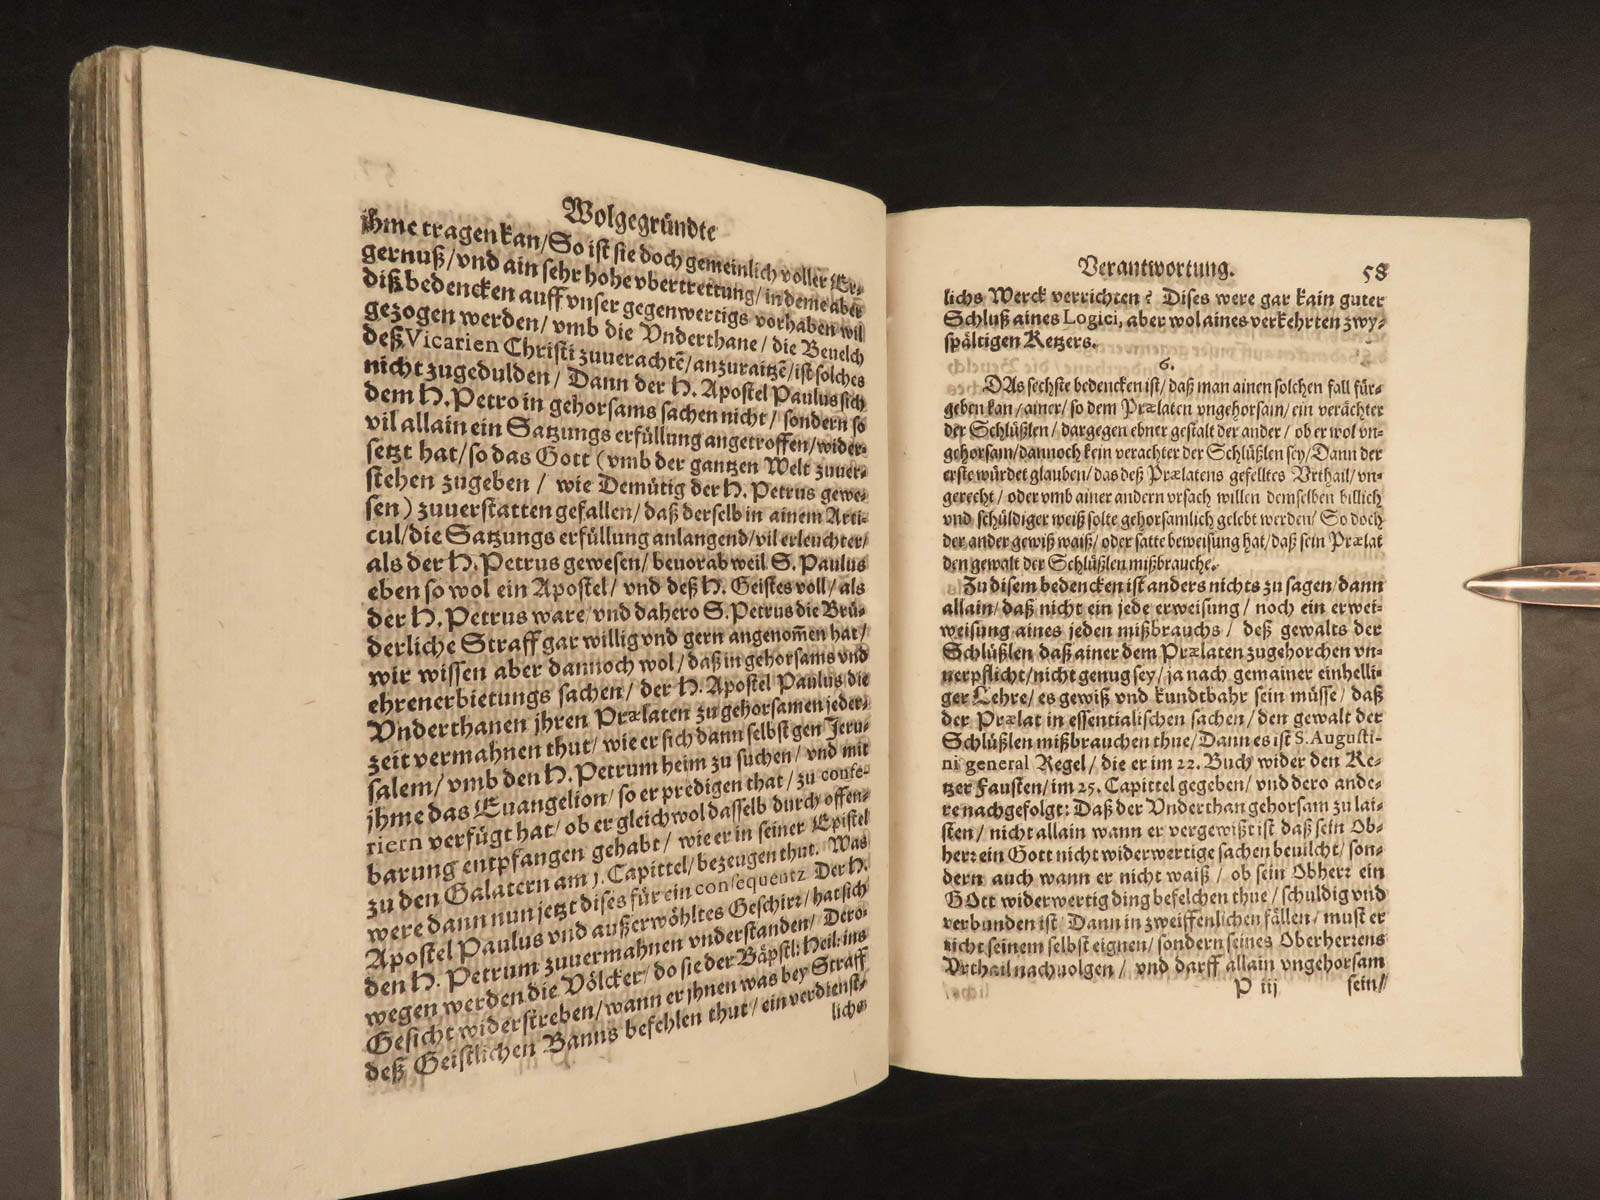 Wolgegründte
jhme tragen kan/ So ist sie doch gemeinlich voller Er-
gernuß/ vnd ain sehr hohe vbertrettung/ in deme aber
diß bedencken auff vnser gegenwertigs vorhaben wil
gezogen werden/ vmb die Vnderthane/ die Beuelch
deß Vicarien Christi zuuerachtē/ anzuraitzē/ ist solches
nicht zugedulden/ Dann der H. Apostel Paulus sich
dem H. Petro in gehorsams sachen nicht/ sondern so
vil allain ein Satzungs erfüllung angetroffen/ wider-
setzt hat/ so das Gott (vmb der gantzen Welt zuuer-
stehen zugeben/ wie Demütig der H. Petrus gewe-
sen) zuuerstatten gefallen/ daß derselb in ainem Arti-
cul/ die Satzungs erfüllung anlangend/ vil erleuchter/
als der H. Petrus gewesen/ beuorab weil S. Paulus
eben so wol ein Apostel/ vnd deß H. Geistes voll/ als
der H. Petrus ware/ vnd dahero S. Petrus die Brü-
derliche Straff gar willig vnd gern angenom̄en hat/
wir wissen aber dannoch wol/ daß in gehorsams vnd
ehrenerbietungs sachen/ der H. Apostel Paulus die
Vnderthanen jhren Prælaten zu gehorsamen jeder-
zeit vermahnen thut/ wie er sich dann selbst gen Jeru-
salem/ vmb den H. Petrum heim zu suchen/ vnd mit
jhme das Euangelion/ so er predigen that/ zu confe-
riern verfügt hat/ ob er gleichwol dasselb durch offen-
barung entpfangen gehabt/ wie er in seiner Epistel
zu den Galatern am 1. Capittel/ bezeugen thut. Was
were dann nun jetzt dises für ein consequentz Der H.
Apostel Paulus vnd außerwöhltes Geschirr/ hat sich
den H. Petrum zuuermahnen vnderstanden/ Dero-
wegen werden die Völcker/ do sie der Bäpstl: Heil: ins
Gesicht widerstreben/ wann er jhnen was bey Straff
deß Geistlichen Banns befehlen thut/ ein verdienst-
lichs
Verantwortung. 58
lichs Werck verrichten? Dises were gar kain guter
Schluß aines Logici, aber wol aines verkehrten zwy-
spältigen Ketzers.
6.
DAs sechste bedencken ist/ daß man ainen solchen fall für-
geben kan/ ainer/ so dem Prælaten vngehorsam/ ein verächter
der Schlüßlen/ dargegen ebner gestalt der ander/ ob er wol vn-
gehorsam/ dannoch kein verachter der Schlüßlen sey/ Dann der
erste würdet glauben/ das deß Prælatens gefelltes Vrthail/ vn-
gerecht/ oder vmb ainer andern vrsach willen demselben billich
vnd schüldiger weiß solte gehorsamlich gelebt werden/ So doch
der ander gewiß waiß/ oder satte beweisung hat/ daß sein Prælat
den gewalt der Schlüßlen mißbrauche.
Zu disem bedencken ist anders nichts zu sagen/ dann
allain/ daß nicht ein jede erweisung/ noch ein erwei-
weisung aines jeden mißbrauchs/ deß gewalts der
Schlüßlen daß ainer dem Prælaten zugehorchen vn-
uerpflicht/ nicht genug sey/ ja nach gemainer einhelli-
ger Lehre/ es gewiß vnd kundtbahr sein müsse/ daß
der Prælat in essentialischen sachen/ den gewalt der
Schlüßlen mißbrauchen thue/ Dann es ist S. Augusti-
ni general Regel/ die er im 22. Buch wider den Ke-
tzer Fausten/ im 25. Capittel gegeben/ vnd dero ande-
re nachgefolgt: Daß der Vnderthan gehorsam zu lai-
sten/ nicht allain wann er vergewißt ist daß sein Ob-
herr ein Gott nicht widerwertige sachen beuilcht/ son-
dern auch wann er nicht waiß/ ob sein Obherr ein
GOtt widerwertig ding befelchen thue/ schuldig vnd
verbunden ist/ Dann in zweiffenlichen fällen/ must er
nicht seinem selbst eignen/ sondern seines Oberherrens
Vrthail nachuolgen/ vnd darff allain vngehorsam
P iij sein/